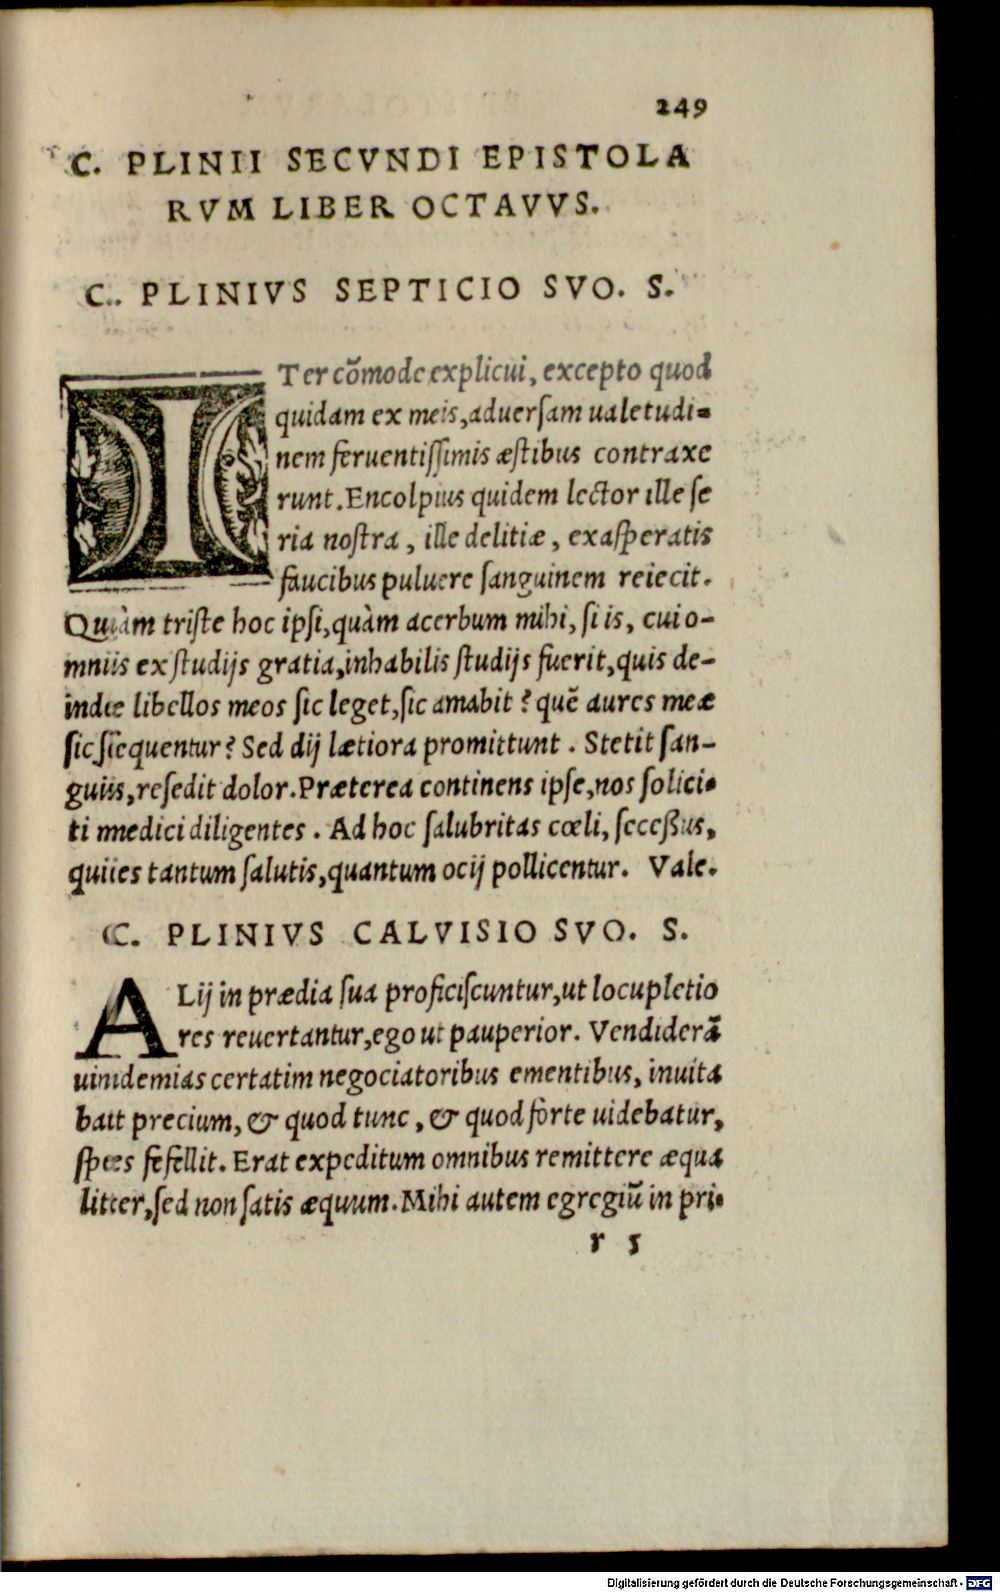 249
C. PLINII SECVNDI EPISTOLA
RVM LIBER OCTAVVS.
C. PLINIVS SEPTICIO SVO. S.
ITer cõmode explicui, excepto quod
quidam ex meis, aduersam ualetudi-
nem feruentissimis æstibus contraxe
runt. Encolpius quidem lector ille se
ria nostra, ille delitiæ, exasperatis
faucibus puluere sanguinem reiecit.
Quàm triste hoc ipsi, quàm acerbum mihi, si is, cui o-
mnis ex studijs gratia, inhabilis studijs fuerit, quis de-
inde libellos meos sic leget, sic amabit? quẽ aures meæ
sic sequentur? Sed dij lætiora promittunt. Stetit san-
guis, resedit dolor. Præterea continens ipse, nos solici-
ti medici diligentes. Ad hoc salubritas cœli, secessus,
quies tantum salutis, quantum ocij pollicentur. Vale.
C. PLINIVS CALVISIO SVO. S.
ALij in prædia sua proficiscuntur, ut locupletio
res reuertantur, ego ut pauperior. Vendiderã
uindemias certatim negociatoribus ementibus, inuita
bat precium, & quod tunc, & quod forte uidebatur,
spes fefellit. Erat expeditum omnibus remittere æqua
liter, sed non satis æquum. Mihi autem egregiũ in pri-
r 5
Digitalisierung gefördert durch die Deutsche Forschungsgemeinschaft - DFG